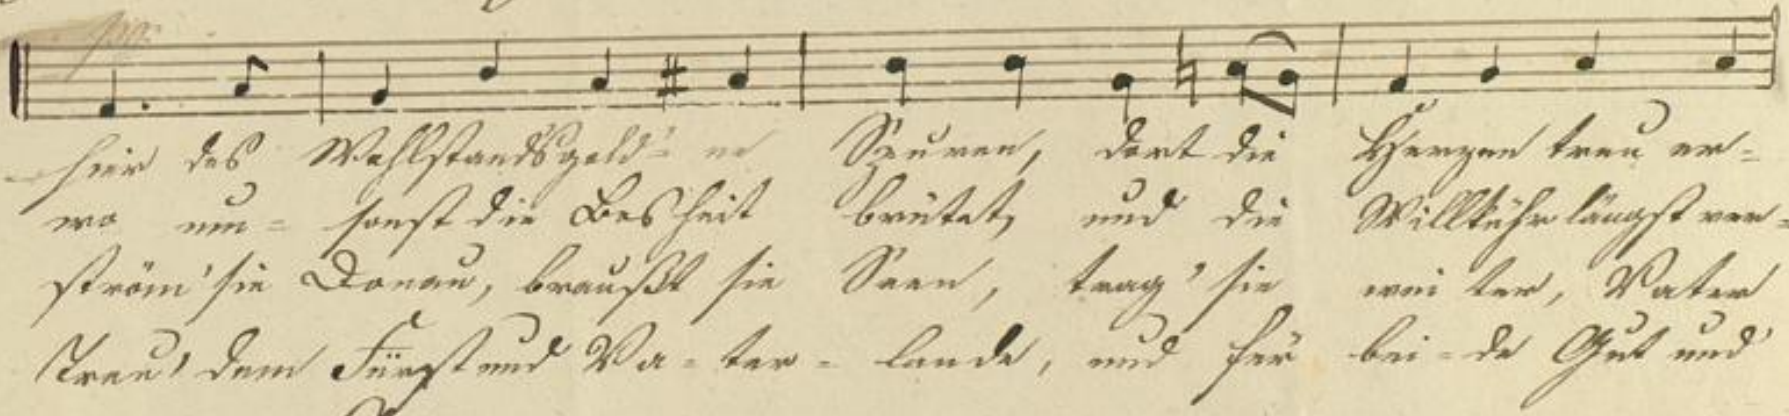 hier des Wohlstandsgold'ne Spuren, dort die Herzen treu er-
wo um-sonst die Bosheit brütet, und die Willkühr längst ver-
ström' sie Donau, braußt sie Seen, trag' sie wei ter, Vater
Treu' dem Fürst und Va-ter-lande, und für bei-de Gut und